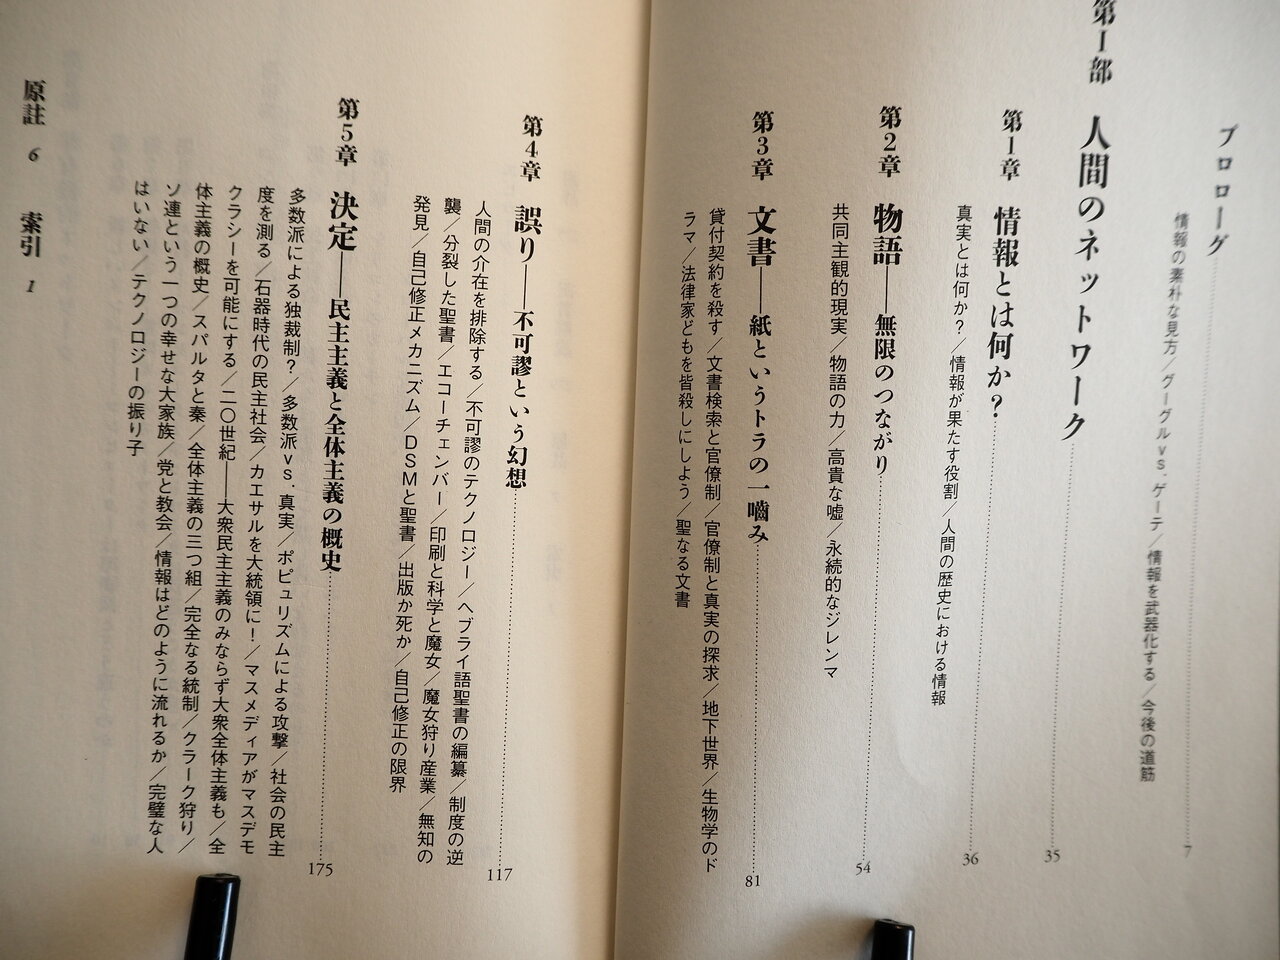 プロローグ 7
情報の素朴な見方／グーグルvs.ゲーテ／情報を武器化する／今後の道筋
第Ⅰ部 人間のネットワーク 35
第1章 情報とは何か? 36
真実とは何か?／情報が果たす役割／人間の歴史における情報
第2章 物語――無限のつながり 54
共同主観的現実／物語の力／高貴な嘘／永続的なジレンマ
第3章 文書――紙というトラの一嚙み 81
貸付契約を殺す／文書検索と官僚制／官僚制と真実の探求／地下世界／生物学のド
ラマ／法律家どもを皆殺しにしよう／聖なる文書
第4章 誤り――不可謬という幻想 117
人間の介在を排除する／不可謬のテクノロジー／ヘブライ語聖書の編纂／制度の逆
襲／分裂した聖書／エコーチェンバー／印刷と科学と魔女／魔女狩り産業／無知の
発見／自己修正メカニズム／DSMと聖書／出版か死か／自己修正の限界
第5章 決定――民主主義と全体主義の概史 175
多数派による独裁制?／多数派vs.真実／ポピュリズムによる攻撃／社会の民主
度を測る／石器時代の民主社会／カエサルを大統領に!／マスメディアがマスデモ
クラシーを可能にする／二〇世紀――大衆民主主義のみならず大衆全体主義も／全
体主義の概史／スパルタと秦／全体主義の三つ組／完全なる統制／クラーク狩り／
ソ連という一つの幸せな大家族／党と教会／情報はどのように流れるか／完璧な人
はいない／テクノロジーの振り子
原註 6 索引 1